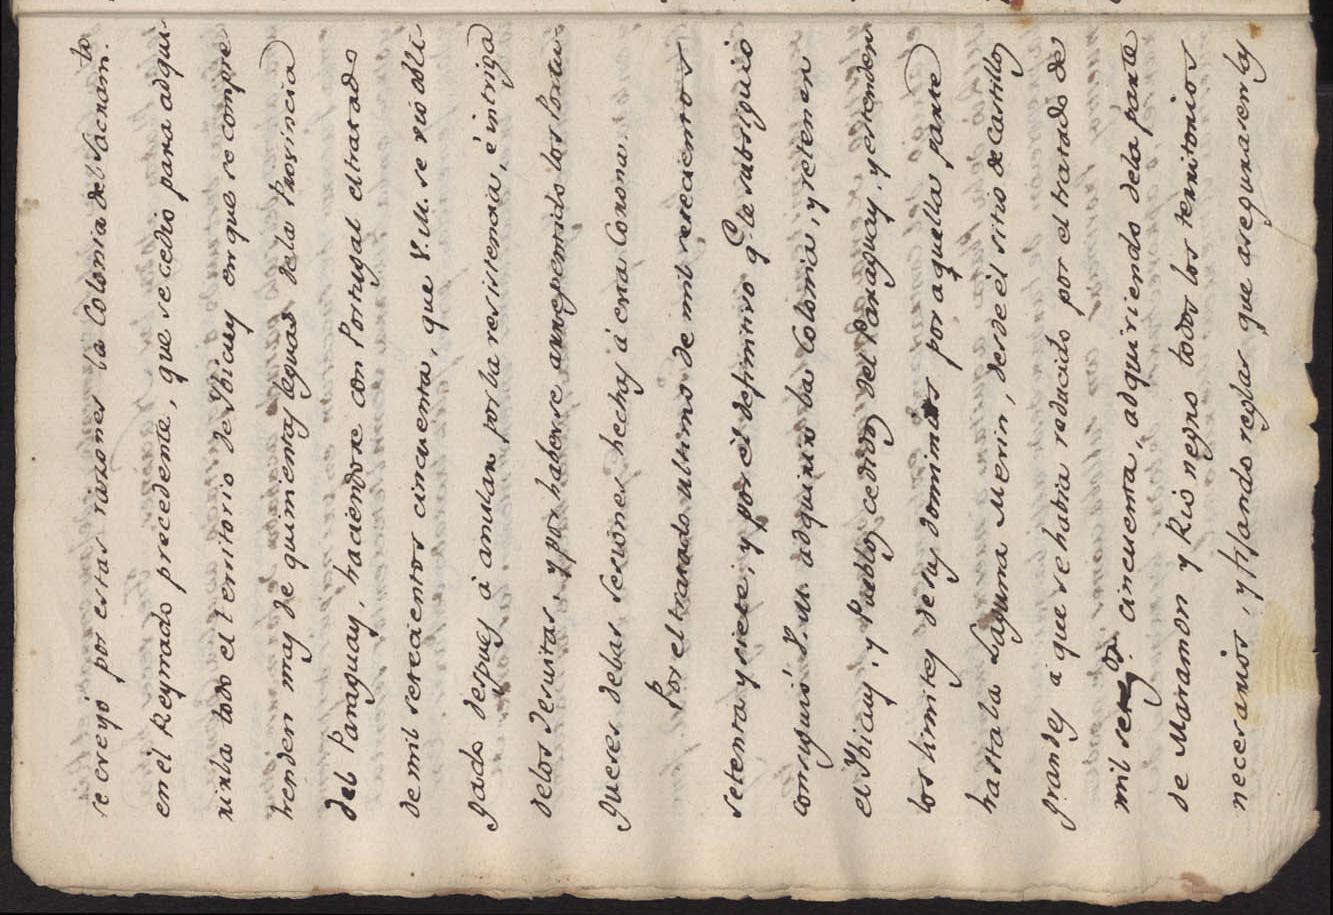 se creyó por estas razones la Colonia del Sacram.to
en el Reynado precedente, que se cedio para adqui
rirla todo el territorio de Ybicuy en que se compre
henden mas de quinientas leguas de la Provincia
del Paraguay, haciendose con Portugal el tratado
de mil setecientos cincuenta, que V.M. se vió obli
gado despues á anular por la resistencia, é intriga
de los Jesuitas, y por haberse arrepentido los Portu
gueses de las sesiones hechas á esta Corona.
Por el tratado ultimo de mil setecientos
setenta y siete; y por el definitivo q.e le subsiguió
consiguió V.M. adquirir la Colonia, y retener
el Ybicuy, y Pueblos cedidos del Paraguay, y estender
los limites de sus dominios por aquella parte
hasta la Laguna Merin, desde el sitio de Castillos
grandes a que se habia reducido por el tratado de
mil set.os cincuenta, adquiriendo de la parte
de Marañon y Rio negro todos los territorios
necesarios, y fijando reglas que asegurasen las